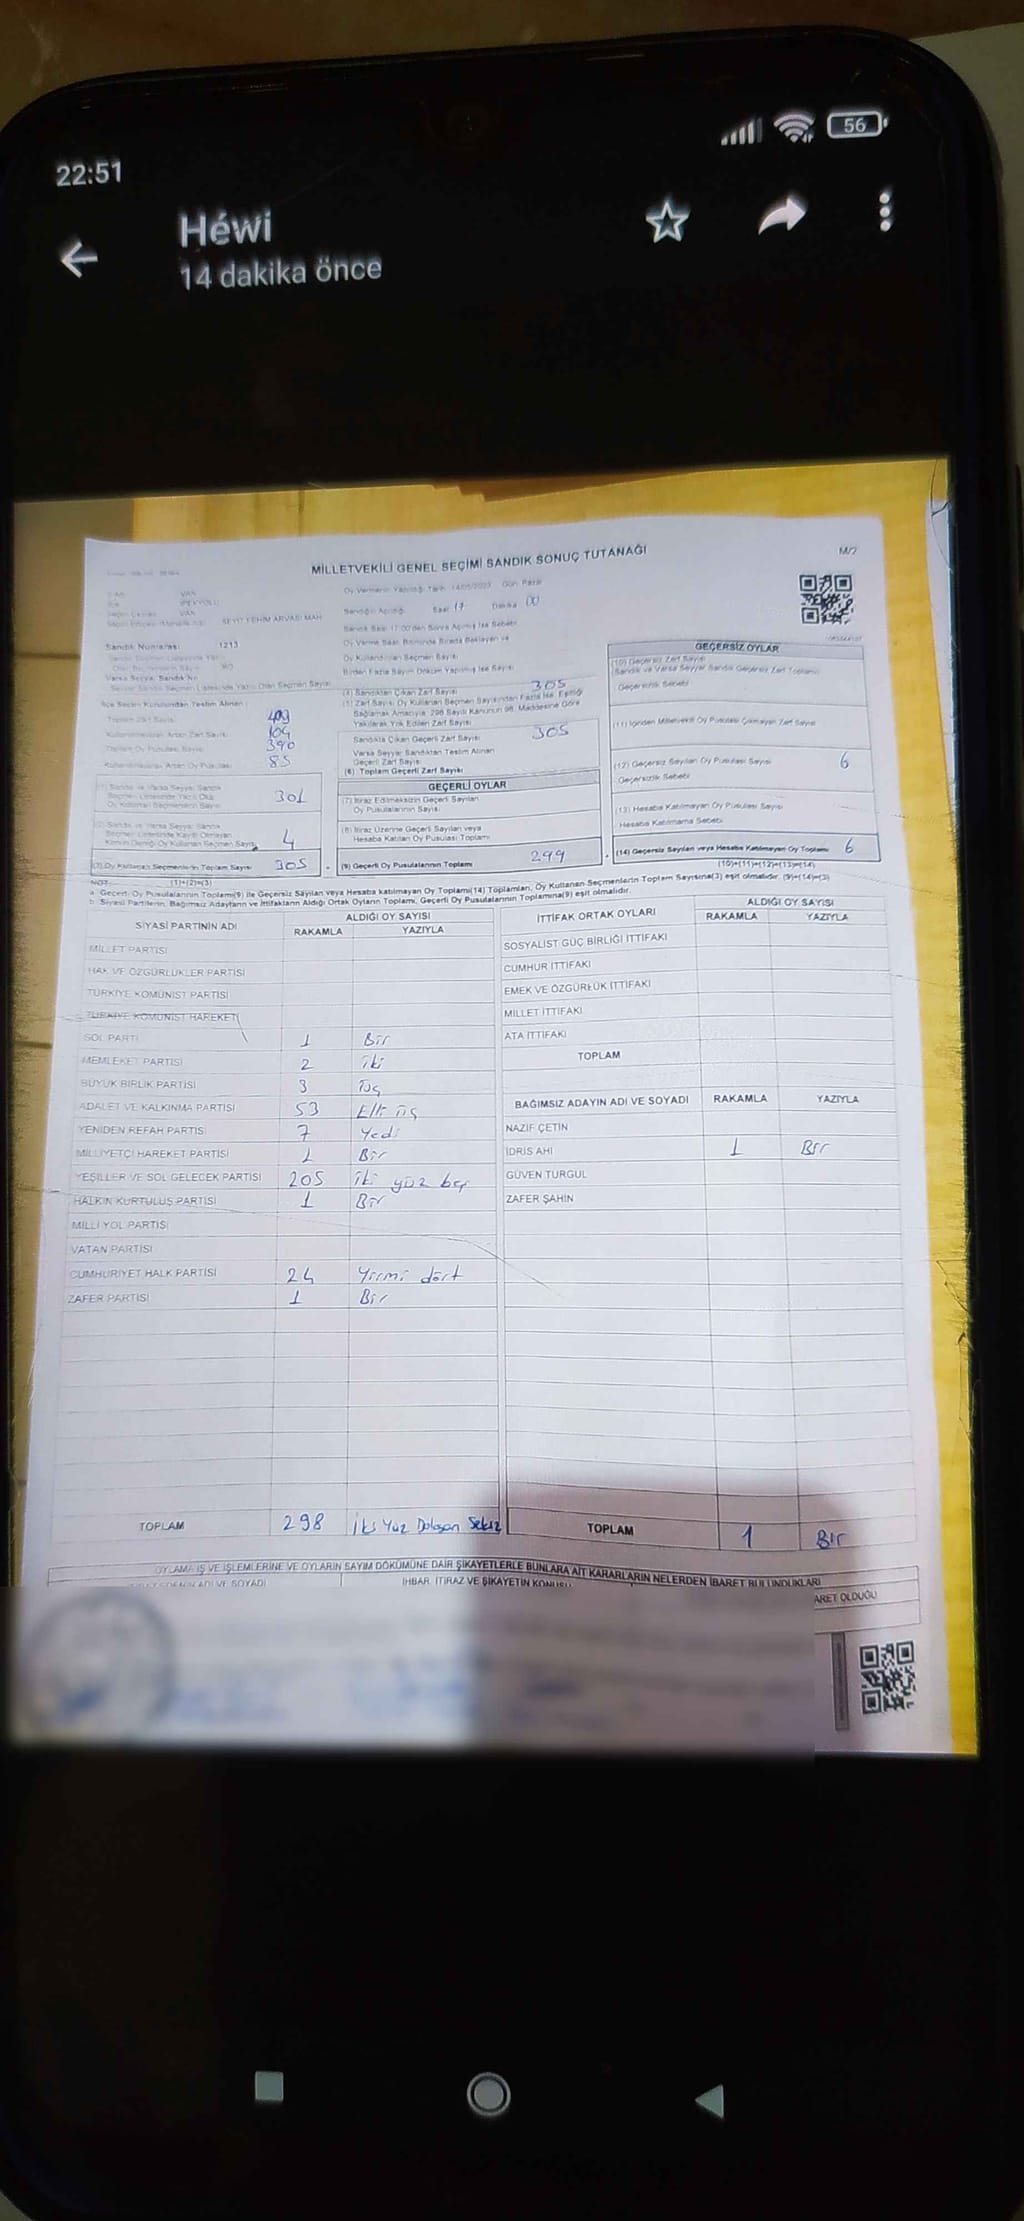 22:51
56
Héwi
14 dakika önce
MİLLETVEKİLİ GENEL SEÇİMİ SANDIK SONUÇ TUTANAĞI
M/2
VAN
İPEKYOLU
VAN
SEYİT FEHİM ARVASİ MAH
Sandık Numarası 1213
Oy Vermenin Yapıldığı Tarih 14/05/2023 Gün Pazar
Sandığın Açıldığı Saat 17 Dakika 00
Sandık Saat 17:00'den Sonra Açılmış İse Sebebi
Oy Verme Saati Bitiminde Sırada Bekleyen ve
Oy Kullandırılan Seçmen Sayısı
Birden Fazla Sayım Döküm Yapılmış İse Sayısı
Varsa Seyyar Sandık No
Seyyar Sandık Seçmen Listesinde Yazılı Olan Seçmen Sayısı
İlçe Seçim Kurulundan Teslim Alınan
Toplam Zarf Sayısı
Kullanılmayarak Artan Zarf Sayısı 104
Toplam Oy Pusulası Sayısı 390
Kullanılmayarak Artan Oy Pusulası 85
(1) Sandık ve Varsa Seyyar Sandık
Seçmen Listesinde Yazılı Olup
Oy Kullanan Seçmenlerin Sayısı 301
(2) Sandık ve Varsa Seyyar Sandık
Seçmen Listesinde Kayıtlı Olmayan
Kanun Gereği Oy Kullanan Seçmen Sayısı 4
(3) Oy Kullanan Seçmenlerin Toplam Sayısı 305
(1)+(2)=(3)
(4) Sandıktan Çıkan Zarf Sayısı 305
(5) Zarf Sayısı, Oy Kullanan Seçmen Sayısından Fazla İse, Eşitliği
Sağlamak Amacıyla, 298 Sayılı Kanunun 98. Maddesine Göre
Yakılarak Yok Edilen Zarf Sayısı
Sandıkta Çıkan Geçerli Zarf Sayısı 305
Varsa Seyyar Sandıktan Teslim Alınan
Geçerli Zarf Sayısı
(6) Toplam Geçerli Zarf Sayısı
GEÇERLİ OYLAR
(7) İtiraz Edilmeksizin Geçerli Sayılan
Oy Pusulalarının Sayısı
(8) İtiraz Üzerine Geçerli Sayılan veya
Hesaba Katılan Oy Pusulası Toplamı
(9) Geçerli Oy Pusulalarının Toplamı 299
GEÇERSİZ OYLAR
(10) Geçersiz Zarf Sayısı
(Sandık ve Varsa Seyyar Sandık Geçersiz Zarf Toplamı)
Geçersizlik Sebebi
(11) İçinden Milletvekili Oy Pusulası Çıkmayan Zarf Sayısı
(12) Geçersiz Sayılan Oy Pusulası Sayısı 6
Geçersizlik Sebebi
(13) Hesaba Katılmayan Oy Pusulası Sayısı
Hesaba Katılmama Sebebi
(14) Geçersiz Sayılan veya Hesaba Katılmayan Oy Toplamı 6
(10)+(11)+(12)+(13)=(14)
NOT
a Geçerli Oy Pusulalarının Toplamı(9) ile Geçersiz Sayılan veya Hesaba katılmayan Oy Toplamı(14) Toplamları, Oy Kullanan Seçmenlerin Toplam Sayısına(3) eşit olmalıdır. (9)+(14)=(3)
b Siyasi Partilerin, Bağımsız Adayların ve İttifakların Aldığı Ortak Oyların Toplamı, Geçerli Oy Pusulalarının Toplamına(9) eşit olmalıdır.
SİYASİ PARTİNİN ADI ALDIĞI OY SAYISI
RAKAMLA YAZIYLA
MİLLET PARTİSİ
HAK VE ÖZGÜRLÜKLER PARTİSİ
TÜRKİYE KOMÜNİST PARTİSİ
TÜRKİYE KOMÜNİST HAREKETİ
SOL PARTİ 1 Bir
MEMLEKET PARTİSİ 2 iki
BÜYÜK BİRLİK PARTİSİ 3 üç
ADALET VE KALKINMA PARTİSİ 53 Elli üç
YENİDEN REFAH PARTİSİ 7 Yedi
MİLLİYETÇİ HAREKET PARTİSİ 1 Bir
YEŞİLLER VE SOL GELECEK PARTİSİ 205 iki yüz beş
HALKIN KURTULUŞ PARTİSİ 1 Bir
MİLLİ YOL PARTİSİ
VATAN PARTİSİ
CUMHURİYET HALK PARTİSİ 24 Yirmi dört
ZAFER PARTİSİ 1 Bir
TOPLAM 298 İki Yüz Doksan Sekiz
İTTİFAK ORTAK OYLARI ALDIĞI OY SAYISI
RAKAMLA YAZIYLA
SOSYALİST GÜÇ BİRLİĞİ İTTİFAKI
CUMHUR İTTİFAKI
EMEK VE ÖZGÜRLÜK İTTİFAKI
MİLLET İTTİFAKI
ATA İTTİFAKI
TOPLAM
BAĞIMSIZ ADAYIN ADI VE SOYADI RAKAMLA YAZIYLA
NAZİF ÇETİN
İDRİS AHİ 1 Bir
GÜVEN TURGUL
ZAFER ŞAHİN
TOPLAM 1 Bir
OYLAMA İŞ VE İŞLEMLERİNE VE OYLARIN SAYIM DÖKÜMÜNE DAİR ŞİKAYETLERLE BUNLARA AİT KARARLARIN NELERDEN İBARET BULUNDUKLARI
ADI VE SOYADI
İHBAR, İTİRAZ VE ŞİKAYETİN KONUSU
OLDUĞU